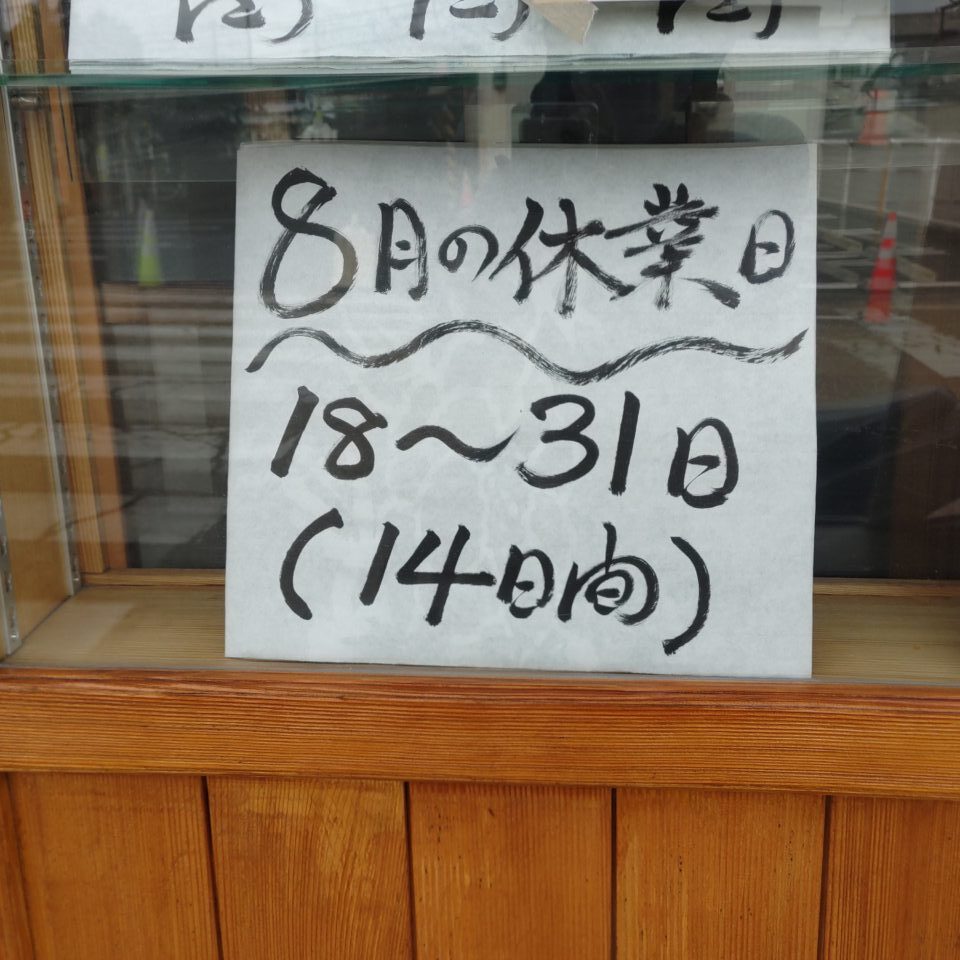 8月の休業日
18〜31日
(14日間)